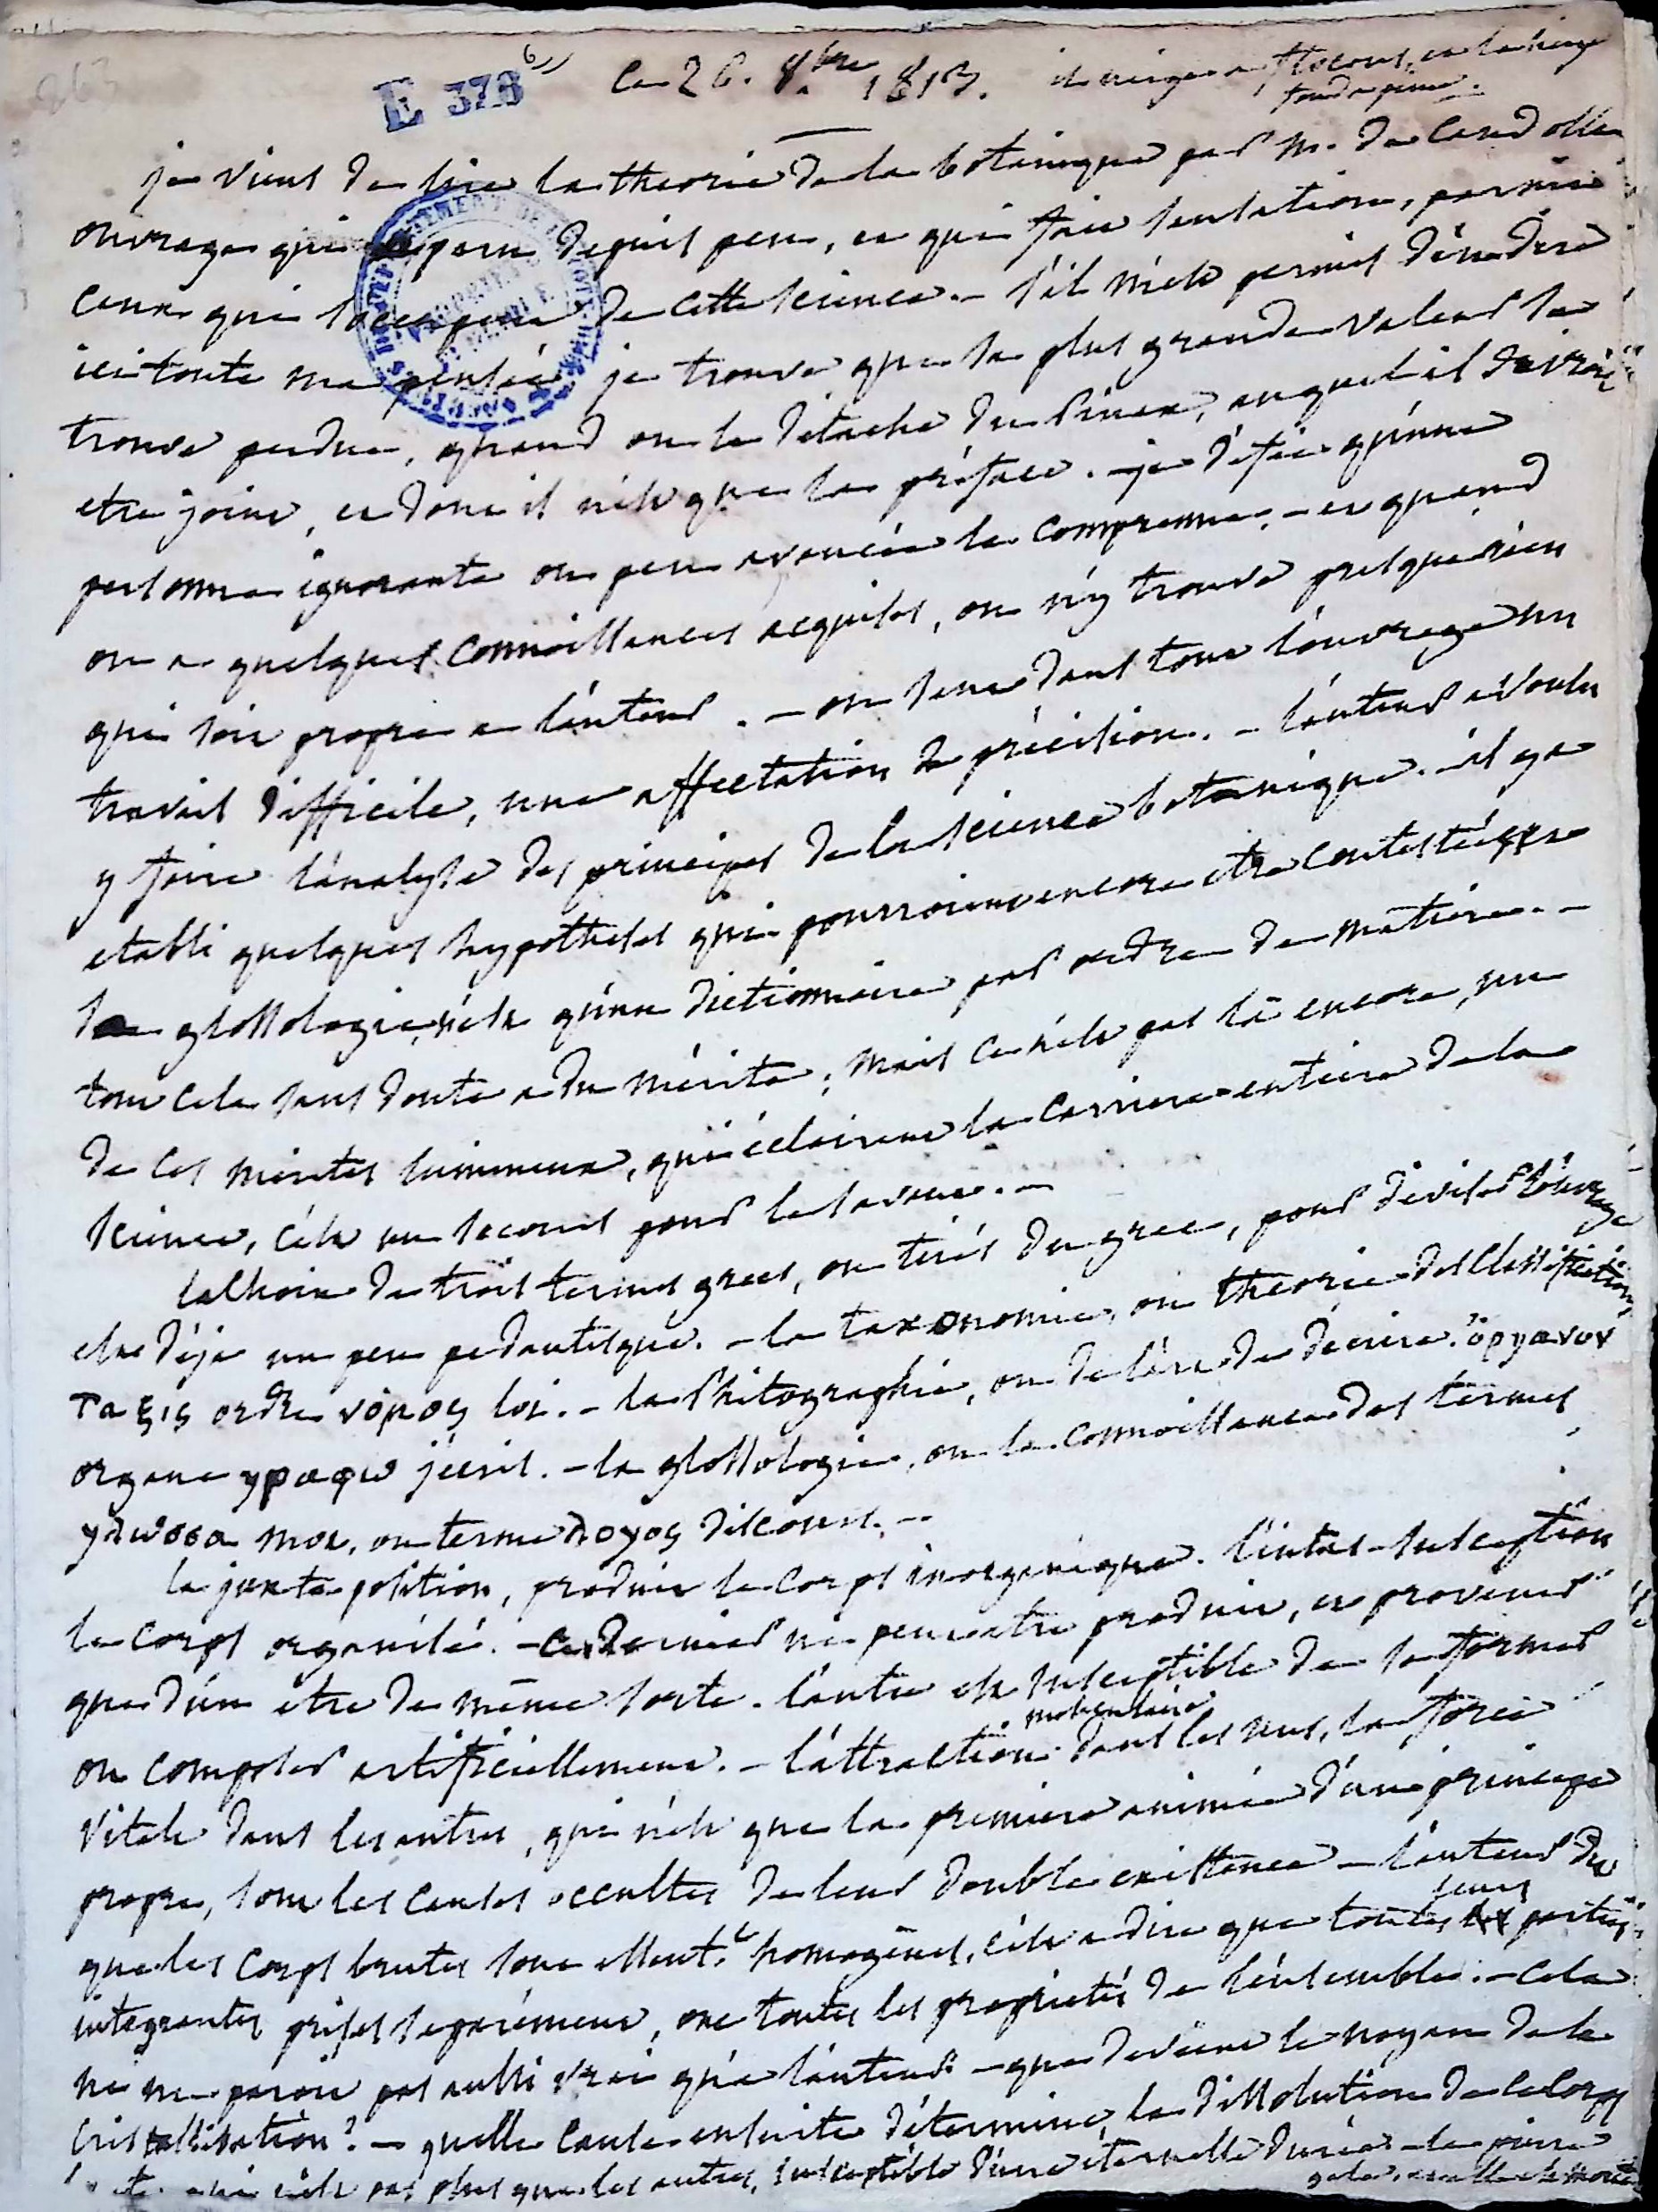 263
E 378 6)) Ce 26. 8bre 1813. il neigea flocons, et la neige
fond a peine.
je viens de lire la theorie de la botanique par M. de Candolle
ouvrage qui a paru depuis peu, et qui fait sensation, parmi
ceux qui s'occupent de cette science. – s'il m'est permis d'énoncer
ici toute ma pensée, je trouve que sa plus grande valeur se
trouve perdue, quand on le détache du auquel il devroit
etre joint, et dont il n'est que la préface. – je défie qu'une
personne ignorante ou peu avancée le comprenne. – et quand
on a quelques connoissances acquises, on n'y trouve presque rien
qui soit propre a l'auteur. – on sent dans tout l'ouvrage un
travail difficile, une affectation de précision. – l'auteur a voulu
y faire l'analyse des principes de la science botanique. il y a
etabli quelques hypotheses qui pourroient encore etre contestées
la glossologie, n'est qu'un dictionnaire par ordre de matiere. –
tout cela sans doute a du mérite; mais ce n'est pas là encore, un
de ces mérites lumineux, qui éclairent la carriere entiere de la
science, c'est un secours pour les savans. –
le choix de trois termes grecs, ou tirés du grec, pour diviser l'ouvrage
est déja un peu pedantesque. – la taxonomie, ou theorie des classifications
ταξις ordre νόμος loi. – la Phitographie, ou de l'art de décrire. ὄργανον
organe γραφω j'écris. – la glossologie, ou la connoissance des termes,
γλωσσα mot, ou terme λογος discours. –
la juxta-position, produit le corps inorganique. l'intus-susception
le corps organisé. – ce dernier ne peut etre produit, et provenir
que d'un etre de même sorte. l'autre est susceptible de se former
ou composer artificiellement. – l'attraction moléculaire dans les uns, la force
vitale dans les autres, qui n'est que la premiere animée d'un principe
propre, sont les causes occultes de leur double existence – l'auteur dit
que les corps brutes sont essent.t homogènes, c'est a dire que toutes leurs parties
intégrantes prises separément, ont toutes les propriétés de l'ensemble. – cela
ne me paroit pas aussi vrai qu'a l'auteur – que devient le noyau de la
cristallisation? – quelle cause ensuite détermine, la dissolution de ce corps
n'est pas plus que les autres, susceptible d'une eternelle durée – la pierre
gele, et